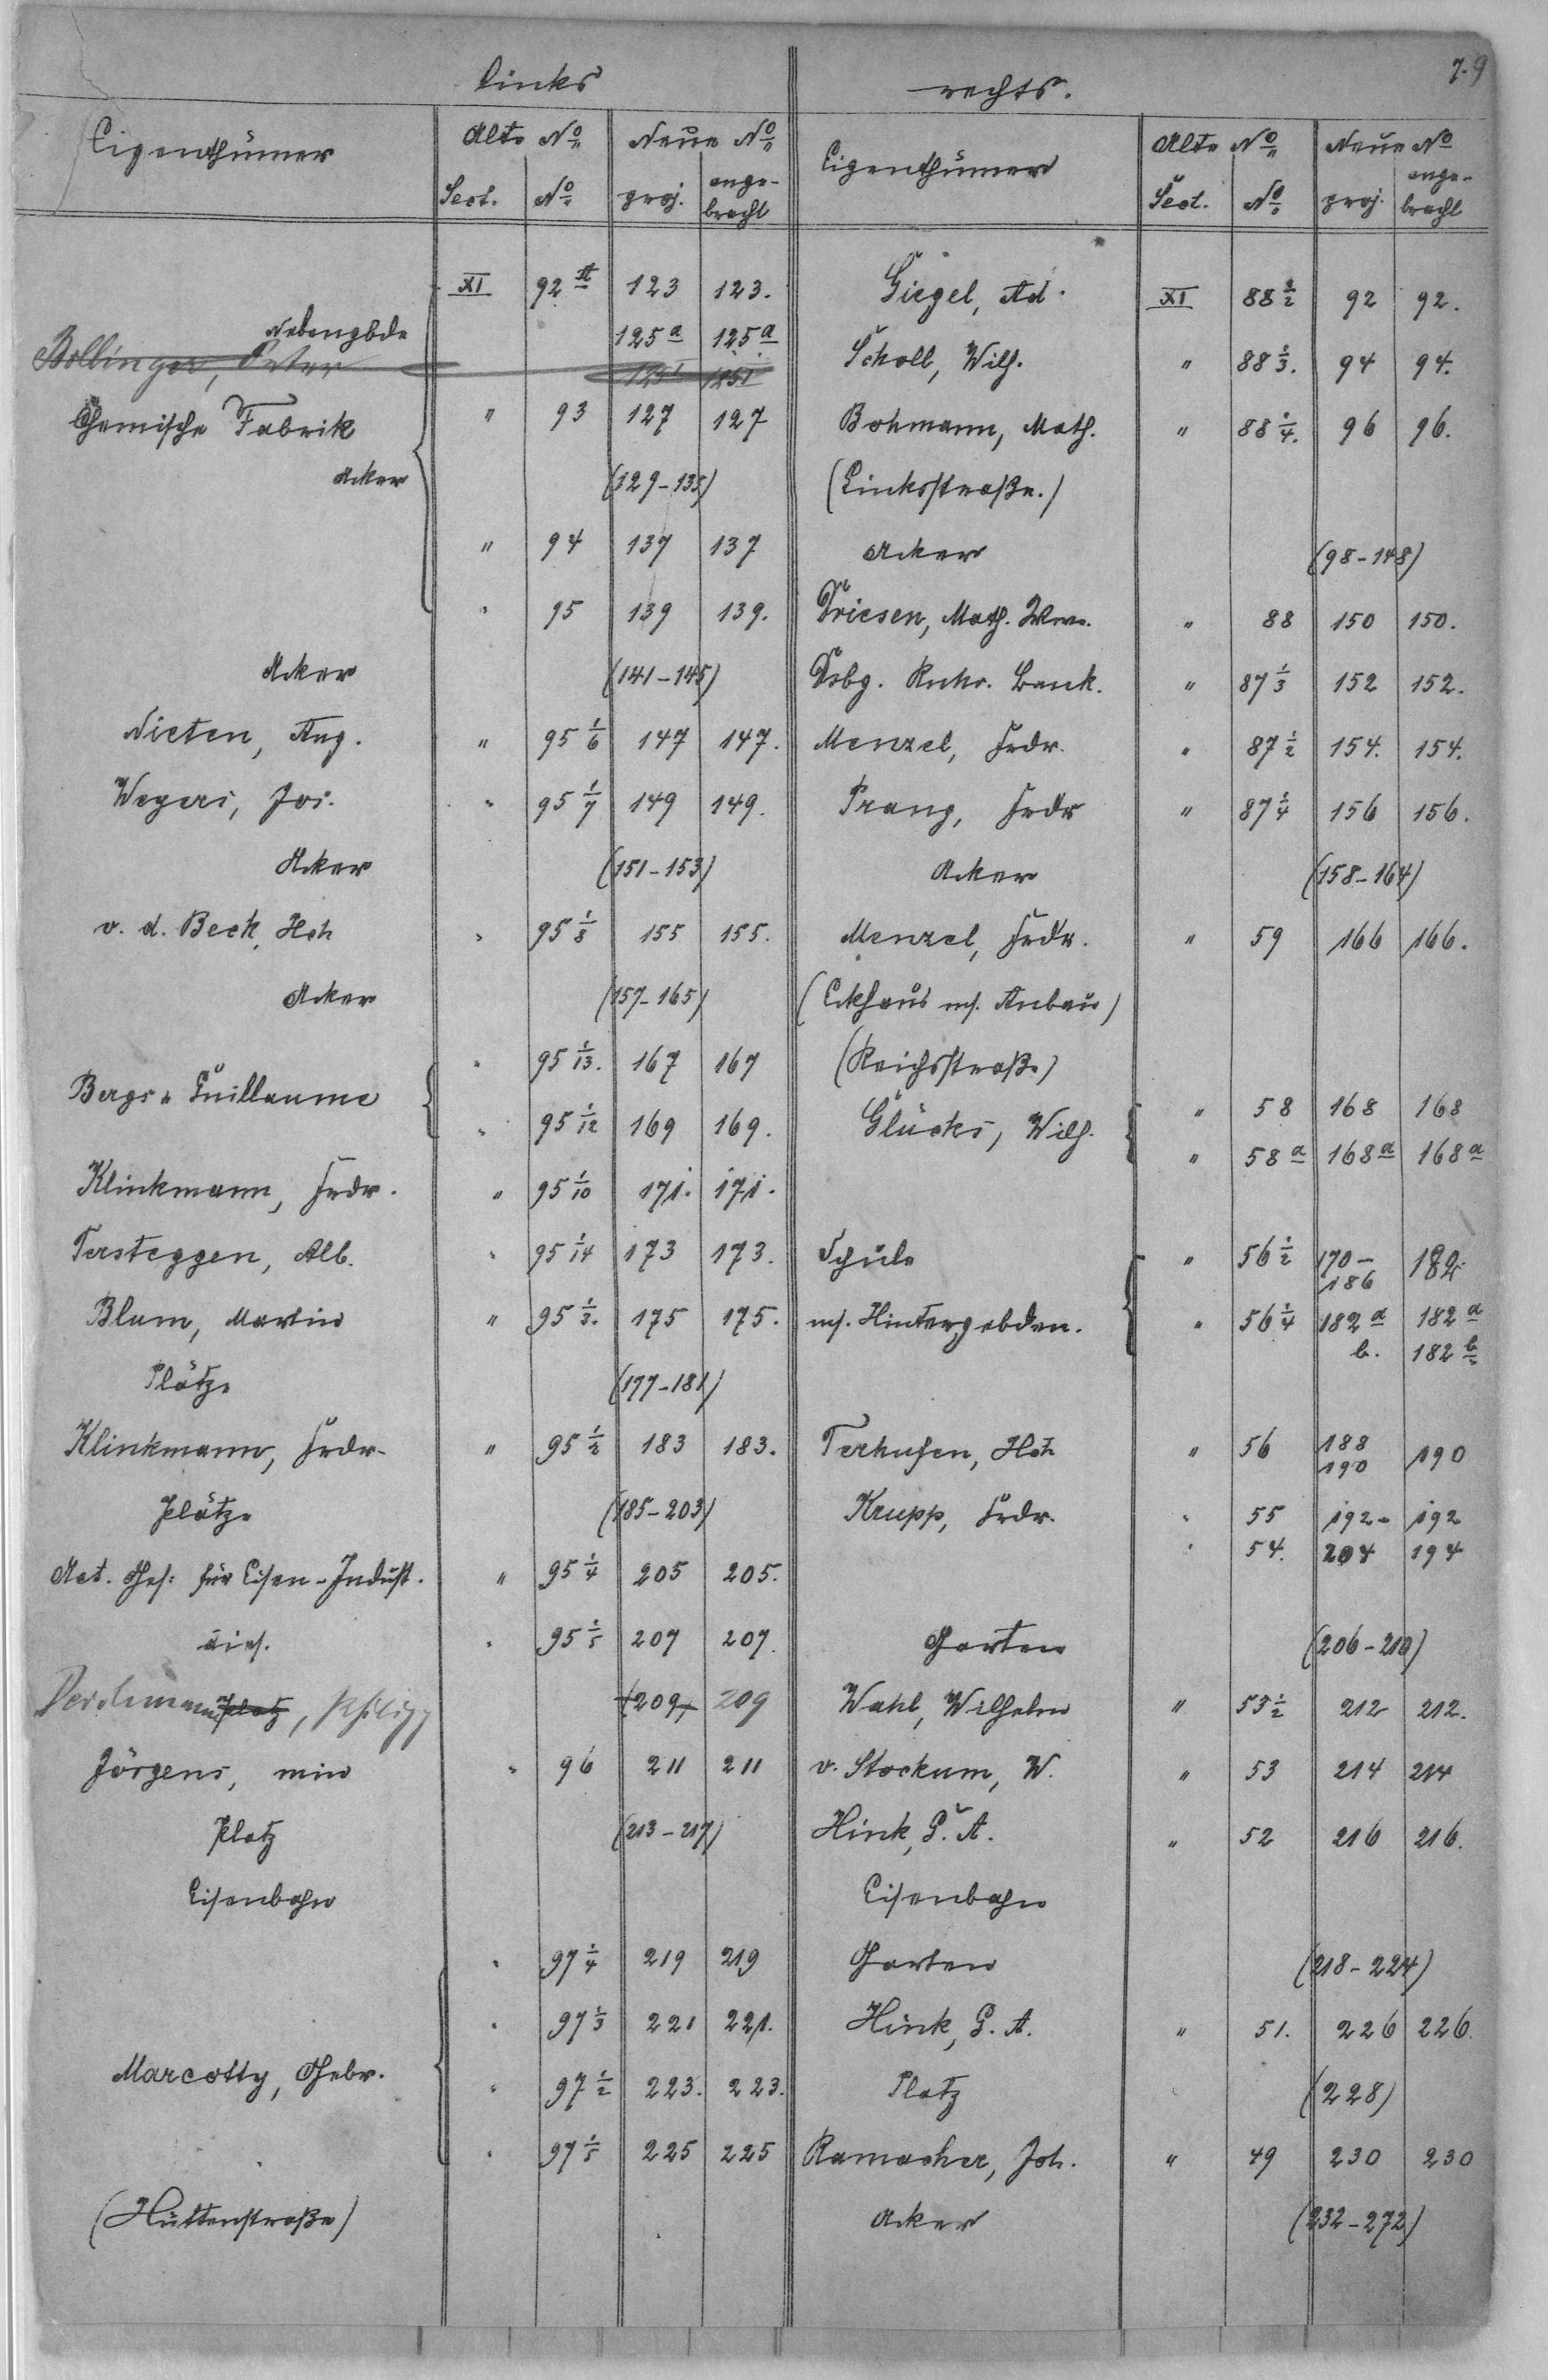 7-9
links
rechts.
Eigenthümer Alte No Neue No
Sect. No proj. ange-bracht
Eigenthümer Alte No Neue No
Sect. No proj. ange-bracht
XI 92 A 123 123. Giegel, Ad. XI 88 1/2 92 92.
Nebengbde 125a 125a
Bollinger, Peter 125 1 125 1 Scholl, Wilh. " 88 1/3. 94 94.
Chemische Fabrik " 93 127 127 Bohmann, Math. " 88 1/4. 96 96.
Acker (129-135) (Linksstraße.)
" 94 137 137 Acker (98-148)
" 95 139 139. Driesen, Math. Wwe. " 88 150 150.
Acker (141-145) Dsbg. Ruhr. Bank. " 87 1/3 152 152.
Nieten, Aug. " 95 1/6 147 147. Menzel, Frdr. " 87 1/2 154. 154.
Wegers, Jos. " 95 1/7 149 149. Prang, Frdr " 87 1/4 156 156.
Acker (151-153) Acker (158-164)
v. d. Beck, Hch " 95 1/8 155 155. Menzel, Frdr. " 59 166 166.
Acker (157-165) (Eckhaus m. Anbau)
" 95 1/13. 167 167 (Reichsstraße)
Bergs u Guillaume " 95 1/12 169 169. Glücks, Wilh. " 58 168 168
" 58a 168a 168a
Klinkmann, Frdr. " 95 1/10 171. 171.
Tersteggen, Alb. " 95 1/14 173 173. Schule " 56 1/2 170-186 182.
Blum, Martin " 95 1/3. 175 175. m. Hintergebden. " 56 1/4 182a 182a
b. 182b
Plätze (177-181)
Klinkmann, Frdr. " 95 1/2 183 183. Terhufen, Hch " 56 188 190 190
Plätze (185-203) Krupp, Frdr. " 55 192- 192
" 54. 204 194
Act. Ges: für Eisen-Indust. " 95 1/4 205 205.
dies. " 95 1/5 207 207. Garten (206-210)
Platz, Philipp (209) 209 Wahl, Wilhelm " 53 1/2 212 212.
Jörgens, min " 96 211 211 v. Stockum, W. " 53 214 214
Platz (213-217) Hink, G. A. " 52 216 216.
Eisenbahn Eisenbahn
" 97 1/4 219 219 Garten (218-224)
" 97 1/3 221 221. Hink, G. A. " 51. 226 226.
Marcotty, Gebr. " 97 1/2 223. 223. Platz (228)
" 97 1/5 225 225 Ramacher, Joh. " 49 230 230
(Hüttenstraße) Acker (232-272)